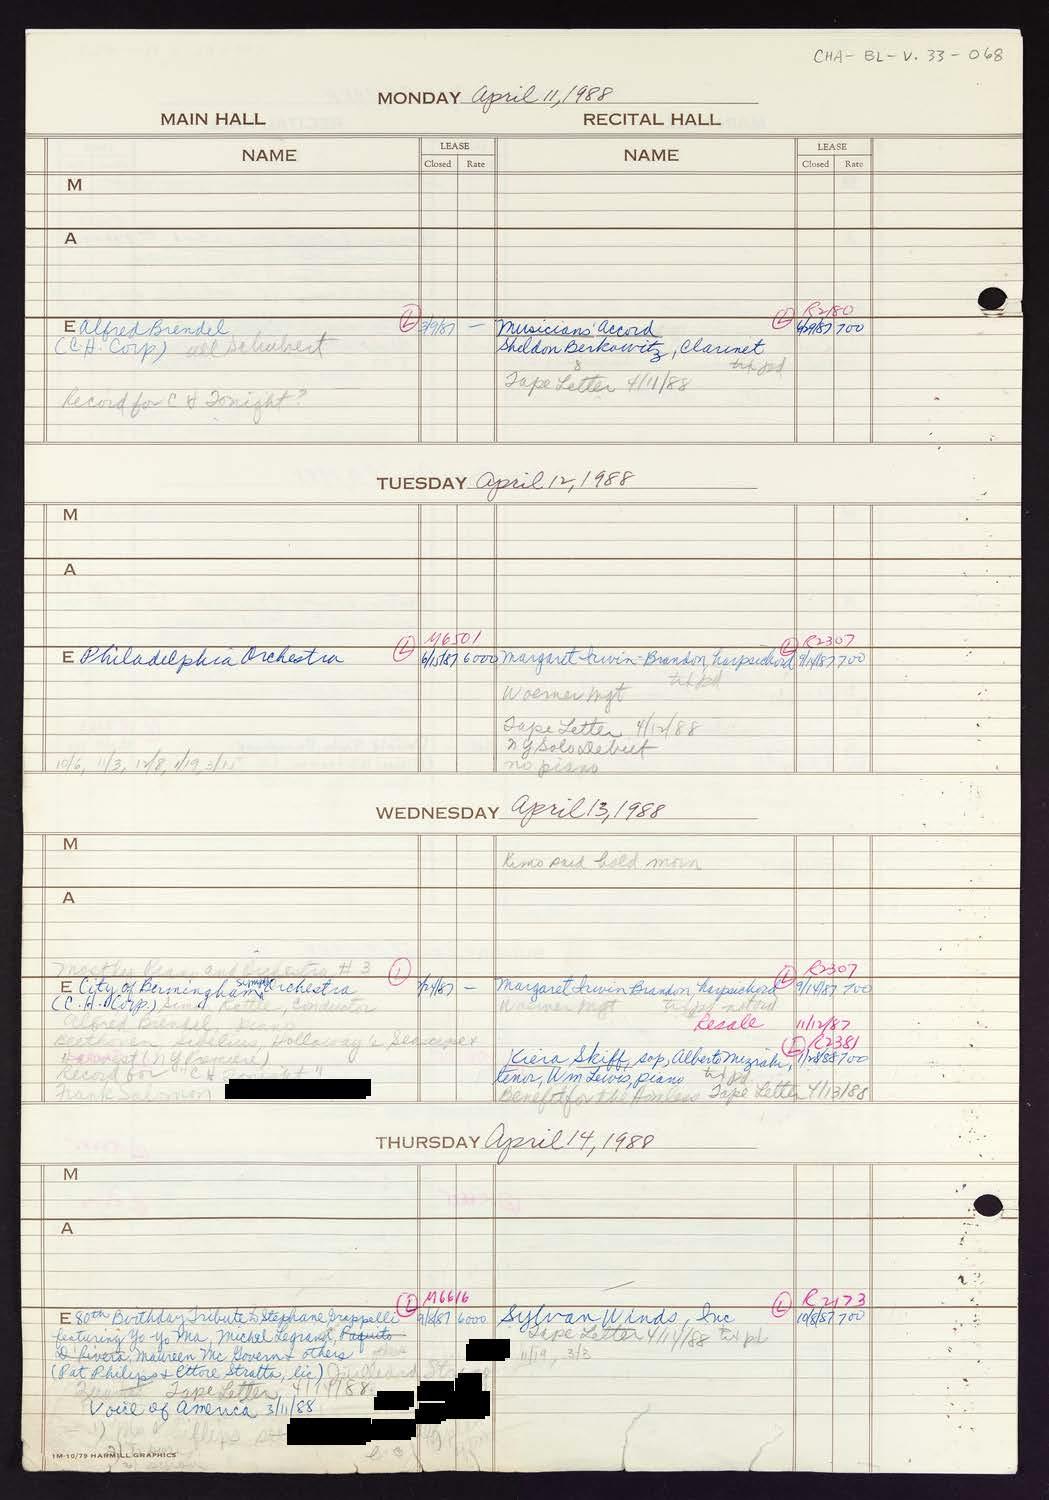 CHA-BL-V. 33-068
MONDAY April 11, 1988
MAIN HALL
RECITAL HALL
NAME
LEASE
Closed Rate
NAME
LEASE
Closed Rate
M
A
R2180
E Alfred Brendel L 3/9/87 —
Musicians' Accord L 6/29/87 700
(C.H. Corp) all Schubert
Sheldon Berkowitz, Clarinet
txt pd
Tape Letter 4/11/88
Record for C H Tonight?
TUESDAY April 12, 1988
M
A
M6501
R2307
E Philadelphia Orchestra L 6/15/87 6000
Margaret Irwin-Brandon, harpsichord L 9/14/87 700
txt pd
Woerner Mgt
Tape Letter 4/12/88
NY Solo Debut
no piano
10/6, 11/3, 12/8, 1/19, 3/15
WEDNESDAY April 13, 1988
M
hold morn
A
Orchestra #3 L
R2307
E City of Bermingham Symph Orchestra /24/87 —
Margaret Irwin Brandon, harpsichord L 9/14/87 700
(C.H. Corp) Simon Rattle, Conductor
Woerner Mgt
Alfred Brendel, piano
Resale 11/12/87
Beethoven Sibelius, Holloway's Seascape &
L R2381
Harvest (NY Premiere)
Kiera Skiff, sop, Alberto Mizrahi, 1/28/88 700
Record for "C H Tonight"
tenor, Wm Lewis, piano txt pd
Frank Salomon
Benefit for the Homeless Tape Letter 4/13/88
THURSDAY April 14, 1988
M
A
M6616
R2173
E 80th Birthday Tribute to Stephane Grappelli L 9/8/87 6000
Sylvan Winds, Inc L 10/8/87 700
featuring Yo-Yo Ma, Michel Legrand, Paquito
Tape Letter 4/14/88 txt pd
D'Rivera, Maureen McGovern & others
11/19, 3/3
(Pat Philips & Ettore Stratta, lic)
Tape Letter 4/14/88
Voice of America 3/11/88
1M-10/79 HARMILL GRAPHICS